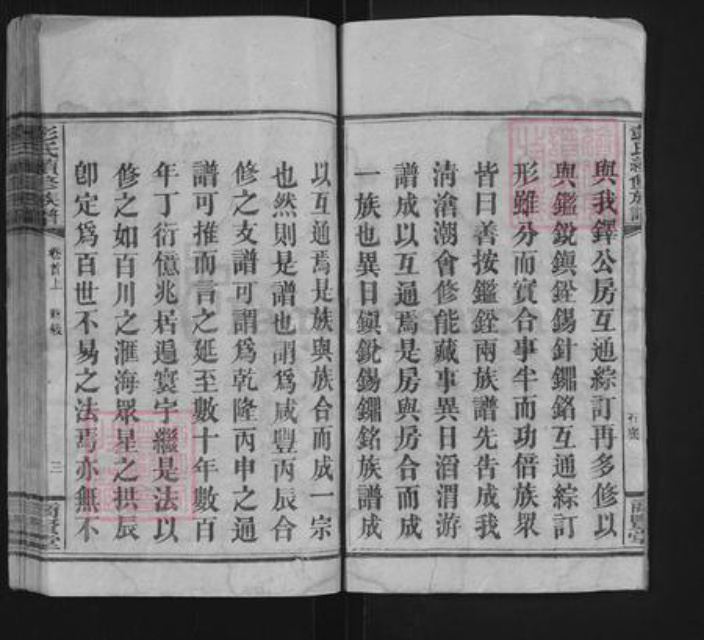 與我鐸公房互通綜訂再多修以
與鑑銳鎭銓錫針鐗銘互通綜訂
形雖分而實合事半而功倍族眾
皆曰善按鑑銓兩族譜先告成我
淸滄潮會修能藏事異日滔渭游
譜成以互通焉是房與房合而成
一族也異日鎭銳錫鐗銘族譜成
以互通焉是族與族合而成一宗
也然則是譜也謂爲咸豐丙辰合
修之支譜可謂爲乾隆丙申之通
譜可推而言之延至數十年數百
年丁衍憶兆居遍寰宇繼是法以
修之如百川之滙海眾星之拱辰
卽定爲百世不易之法焉亦無不
彭氏續修族譜
卷首上
三